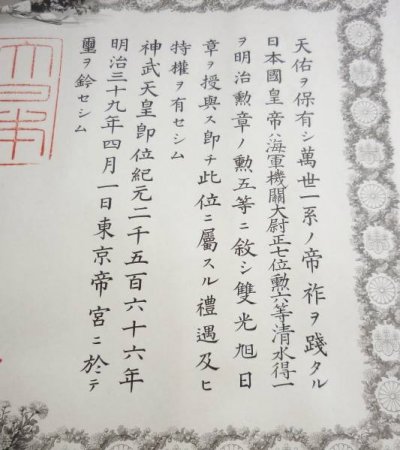 天佑ヲ保有シ萬世一系ノ帝祚ヲ踐タル
日本國皇帝ハ海軍機關大尉正七位勲六等清水得一
ヲ明治勲章ノ勲五等ニ敘シ雙光旭日
章ヲ授與ス即チ此位ニ屬スル禮遇及ヒ
特權ヲ有セシム
神武天皇即位紀元二千五百六十六年
明治三十九年四月一日東京帝宮ニ於テ
璽ヲ鈐セシム